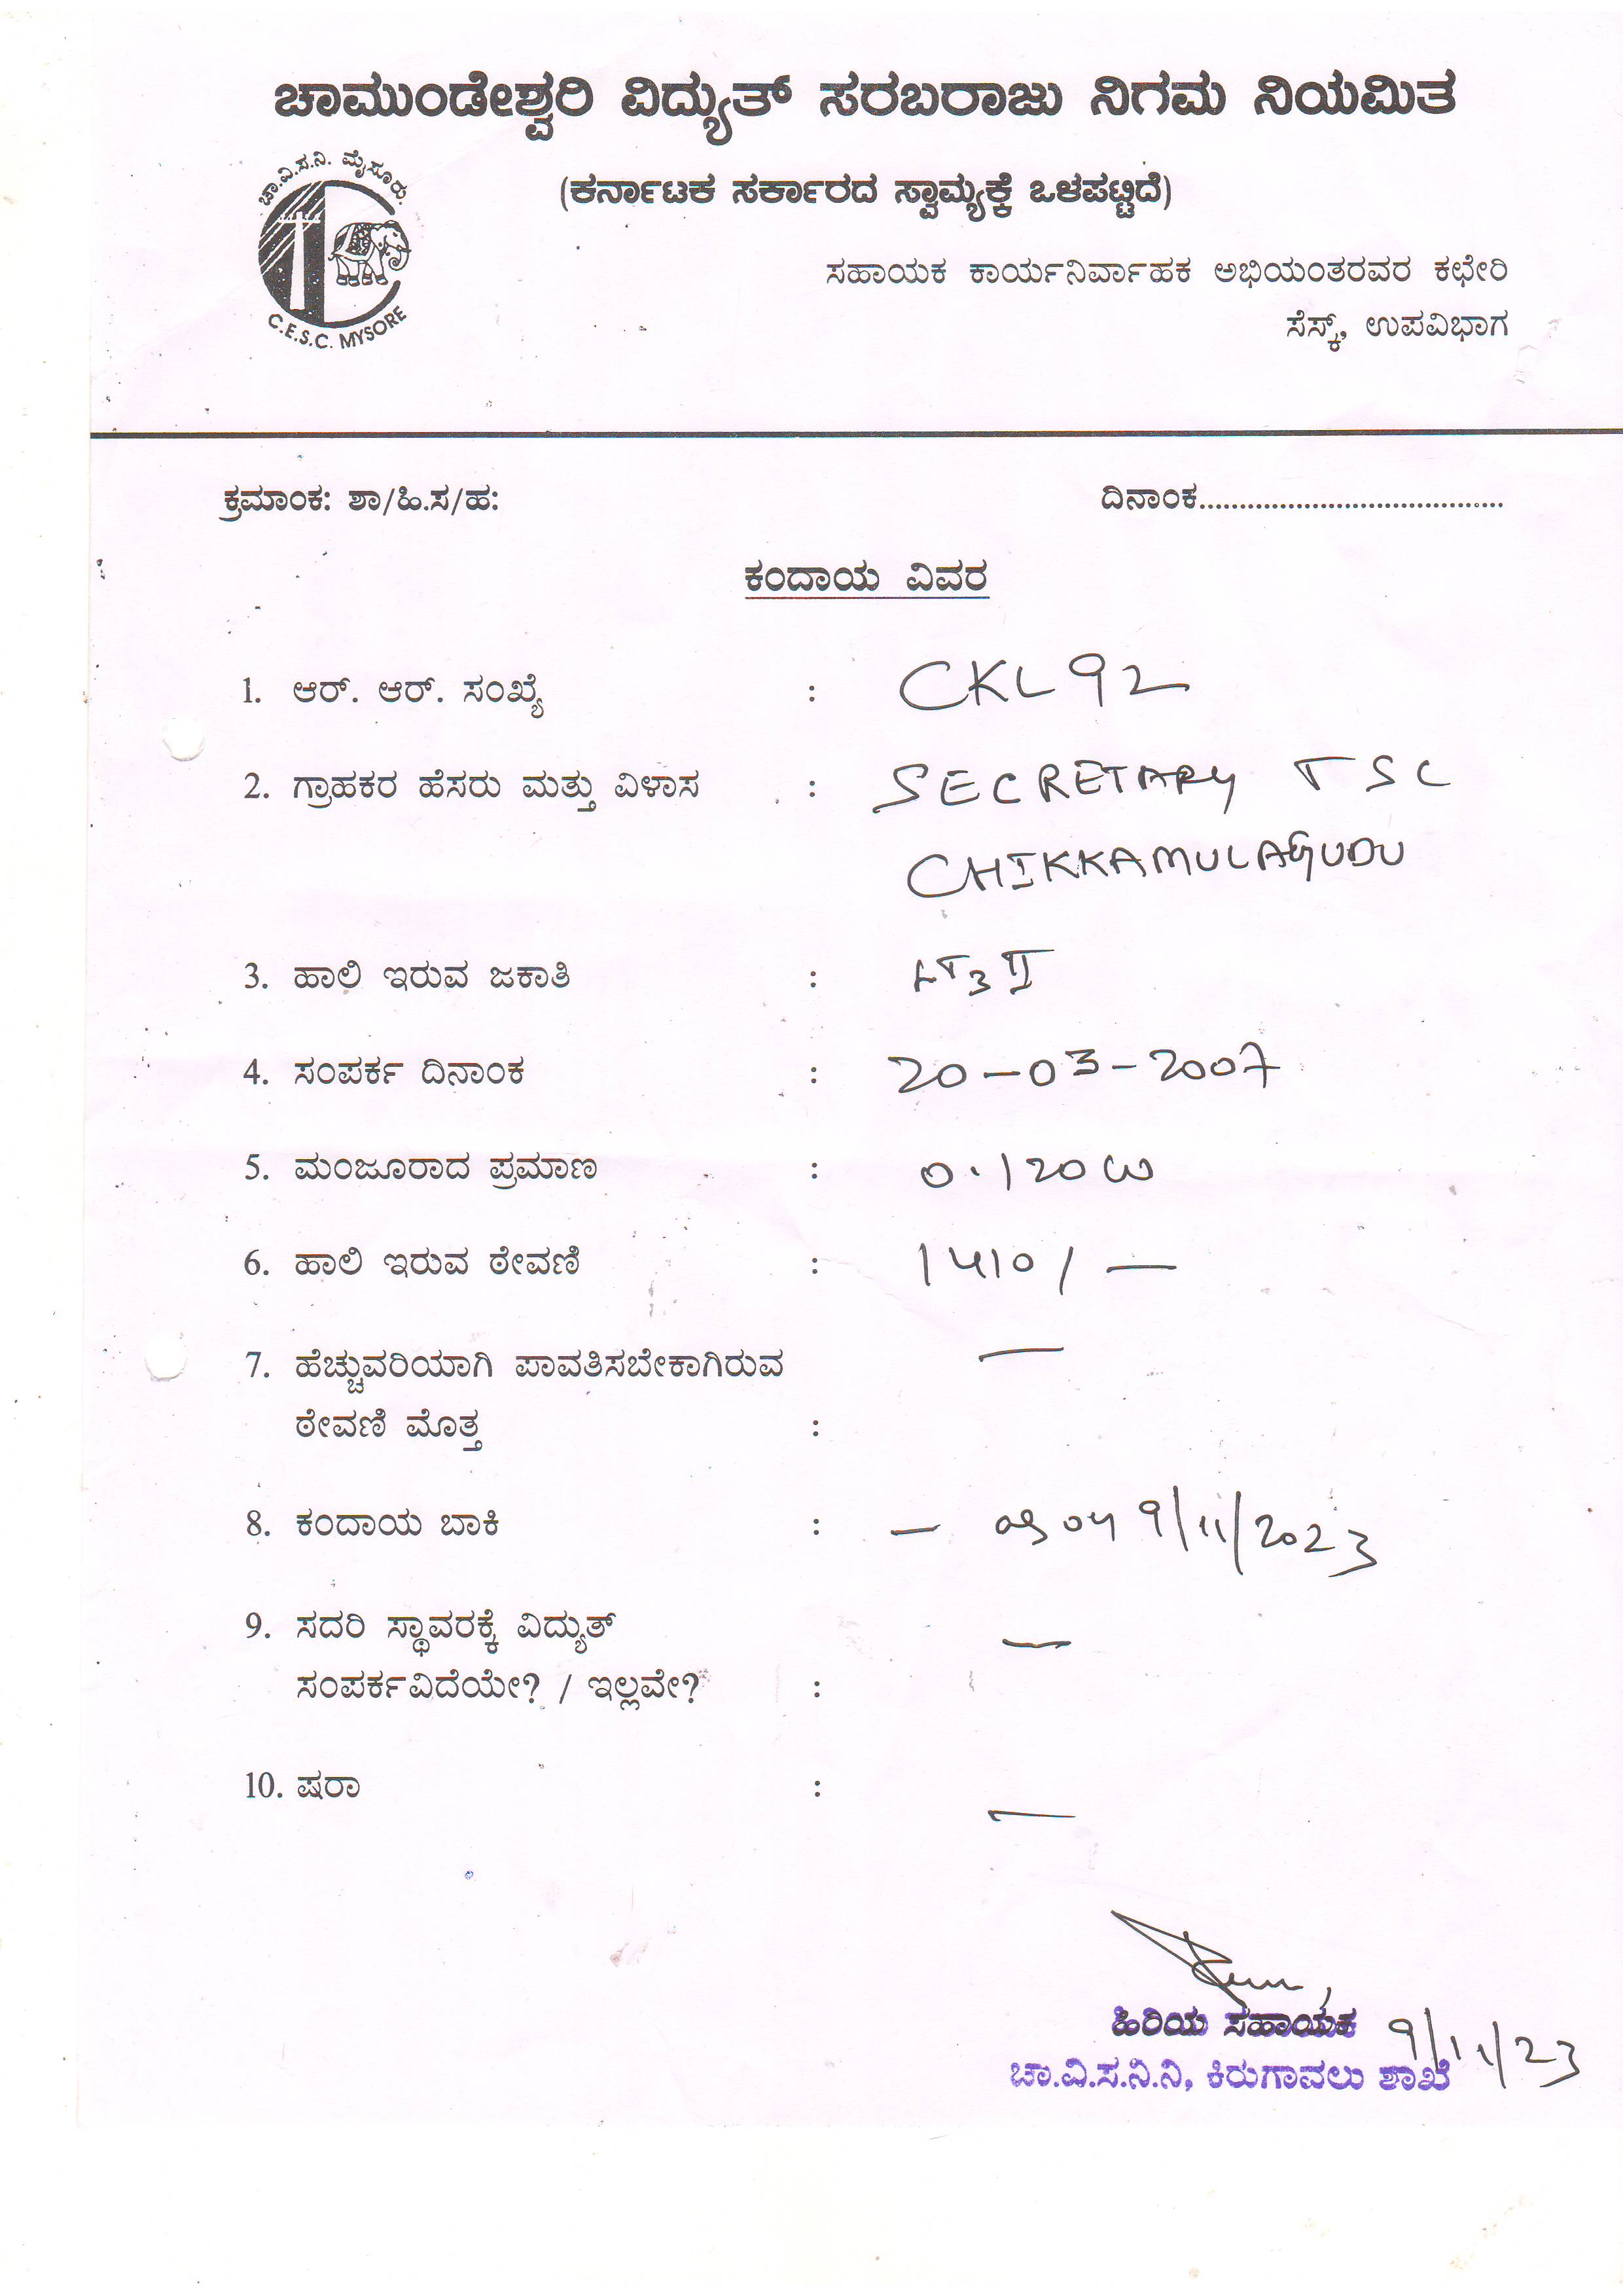 ಚಾಮುಂಡೇಶ್ವರಿ ವಿದ್ಯುತ್ ಸರಬರಾಜು ನಿಗಮ ನಿಯಮಿತ
ಚಾ.ವಿ.ಸ.ನಿ. ಮೈಸೂರು.
(ಕರ್ನಾಟಕ ಸರ್ಕಾರದ ಸ್ವಾಮ್ಯಕ್ಕೆ ಒಳಪಟ್ಟಿದೆ)
ಸಹಾಯಕ ಕಾರ್ಯನಿರ್ವಾಹಕ ಅಭಿಯಂತರವರ ಕಛೇರಿ
C.E.S.C. MYSORE
ಸೆಸ್ಕ್, ಉಪವಿಭಾಗ
ಕ್ರಮಾಂಕ: ಶಾ/ಹಿ.ಸ/ಹ: ದಿನಾಂಕ......................................
ಕಂದಾಯ ವಿವರ
1. ಆರ್. ಆರ್. ಸಂಖ್ಯೆ : CKL 92
2. ಗ್ರಾಹಕರ ಹೆಸರು ಮತ್ತು ವಿಳಾಸ : SECRETARY TSC
CHIKKAMULAGUDU
3. ಹಾಲಿ ಇರುವ ಜಕಾತಿ : LT3 II
4. ಸಂಪರ್ಕ ದಿನಾಂಕ : 20-03-2007
5. ಮಂಜೂರಾದ ಪ್ರಮಾಣ : 0.120 W
6. ಹಾಲಿ ಇರುವ ಠೇವಣಿ : 1410/—
7. ಹೆಚ್ಚುವರಿಯಾಗಿ ಪಾವತಿಸಬೇಕಾಗಿರುವ —
ಠೇವಣಿ ಮೊತ್ತ :
8. ಕಂದಾಯ ಬಾಕಿ : — as on 9/11/2023
9. ಸದರಿ ಸ್ಥಾವರಕ್ಕೆ ವಿದ್ಯುತ್ —
ಸಂಪರ್ಕವಿದೆಯೇ? / ಇಲ್ಲವೇ? :
10. ಷರಾ : —
ಹಿರಿಯ ಸಹಾಯಕ 9/11/23
ಚಾ.ವಿ.ಸ.ನಿ.ನಿ, ಕಿರುಗಾವಲು ಶಾಖೆ